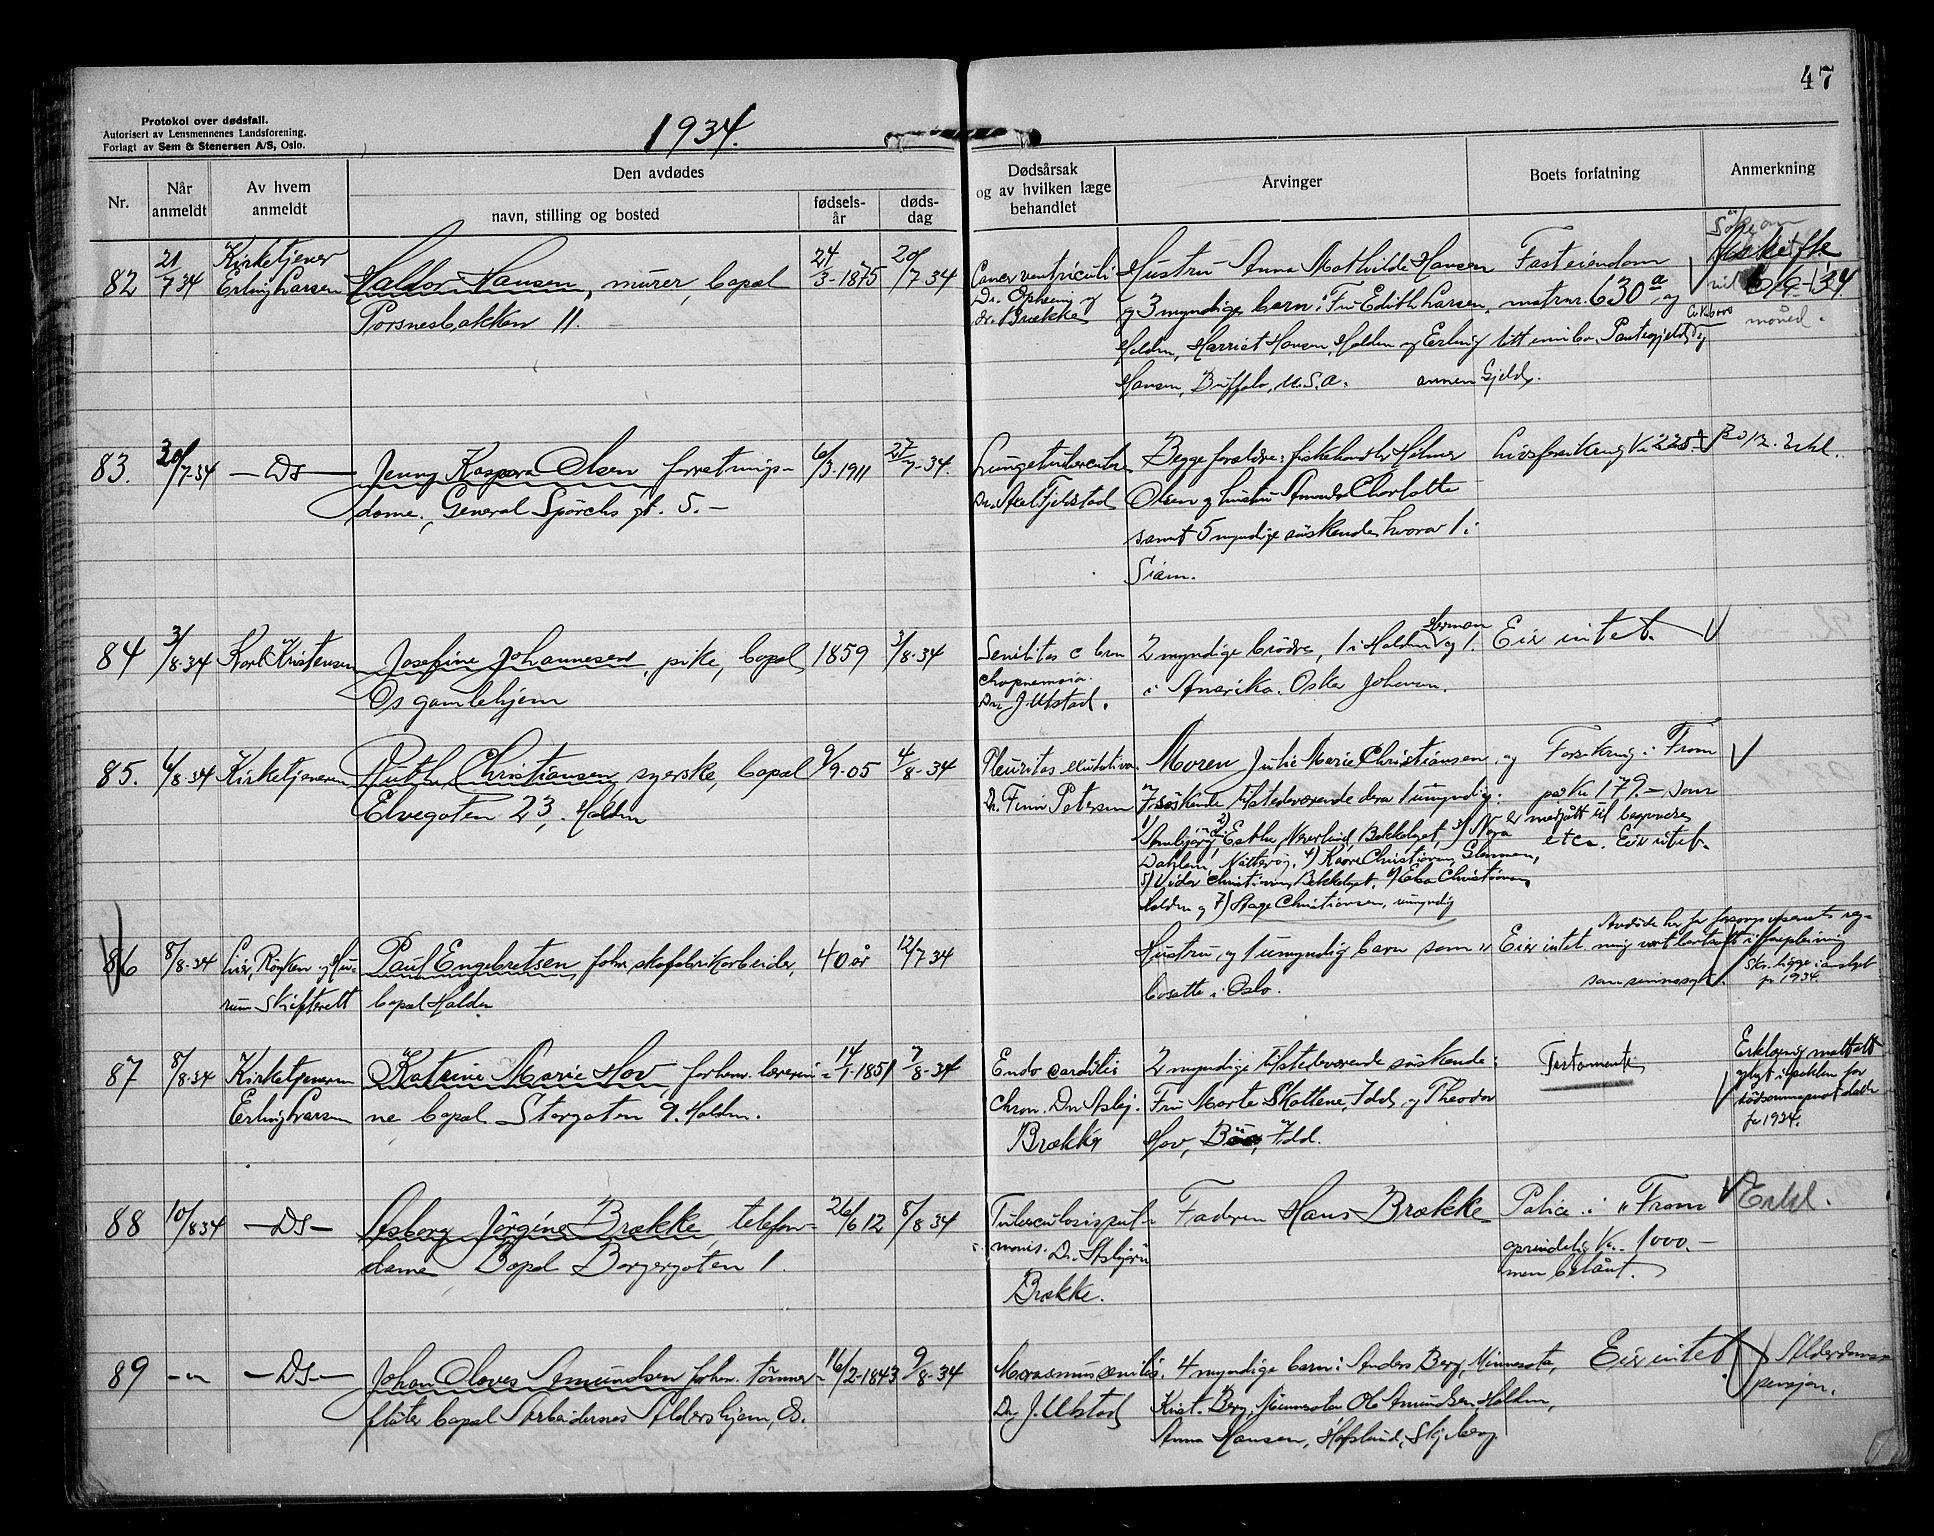 47
Protokol over dødsfall.
Autorisert av Lensmennenes Landsforening.
Forlagt av Sem & Stenersen A/S, Oslo.
1934.
Nr.
Når anmeldt
Av hvem anmeldt
Den avdødes
navn, stilling og bosted
fødsels-år
døds-dag
Dødsårsak og av hvilken læge behandlet
Arvinger
Boets forfatning
Anmerkning
82
21/7 34
Kirketjener
Erling Larsen
Haldor Hansen, murer, bopæl
Porsnesbakken 11.
24/3-1875
20/7-34
Cancer ventriculi
Dr.
dr. Brække
Hustru Anna Mathilde Hansen
og 3 myndige barn: Fru Edith Larsen,
Halden, Harriet Hansen, Halden og Erling
Hansen, Buffalo, U.S.A.
Fast eiendom
matr.nr. 630a og
litt innbo. Pantegjeld og
annen Gjeld.
måned.
83.
30/7-34
—Ds—
Jenny Kaspara Olsen, forretnings-
dame, General Spörcks gt. 5. —
6/3-1911
27/7-34.
Lungetuberculose
Dr. Axel Fjelstad
Begge forældre: fiskehandler Hilmer
Olsen og hustru Amanda Charlotte
samt 5 myndige söskende, hvorav 1 i
Siam.
Livsforsikring Kr. 225.-
84
3/8-34
Karl Kristensen
Josefine Johannesen, pike, bopæl
Os gamlehjem
1859
3/8-34
Senilitas c bron
chopnemonia.
Dr. J. Ulstad.
2 myndige brödre, 1 i Halden Herman og 1
i Amerika. Oskar Johansen.
Eier intet.
85.
6/8-34
Kirketjeneren
Ruth Christiansen, syerske, bopæl
Elvegaten 23, Halden
9/9-05
4/8-34
Pleuritis exudativa
Dr. Finn Petersen
Moren Julie Marie Christiansen, og
7 söskende tilstedeværende derav 1 umyndig:
1) 2) Esther Bekkelaget, 3) Nora
Dahlen, 4) Kaare Christiansen, Glemmen,
5) Vidar Christiansen, Bekkelaget. 6) Christiansen,
Halden og 7) Aage Christiansen, umyndig
Forsikring i Fram
på Kr. 179.— som
er medgått til begravelse
etc. Eier intet.
86
8/8-34
Lier, Röyken og Hu-
rum Skifterett
Paul Engebretsen, forhv. skofabrikarbeider,
bopæl Halden
40 år
12/7 34
Hustru, og 1 umyndig barn som er
bosatte i Oslo.
Eier intet
Avdöde har for
som sinnssyk.
for 1934.
87
8/8-34
Kirketjeneren
Erling Larsen
Katrine Marie Hov, forhenv. lærerin-
ne bopæl Storgaten 9. Halden.
14/1-1851
7/8-34
Endocarditis
chron. Dr. Asbj.
Brække
2 myndige tilstedeværende söskende:
Fru Marte Skottene, Idd, og Theodor
Hov, Idd.
Testamente
for 1934.
88
10/8 34
—Ds—
Asborg Jörgine Brække, telefon-
dame Bopæl Borgergaten 1.
26/6 12
8/8 34
Tuberculosis pul-
monis. Dr. Asbjörn
Brække.
Faderen Hans Brække
Police i "Fram
oprindelig Kr. 1000.—
men belånt.
Erkl.
89
—"—
—Ds—
Johan Olaves Amundsen, forhen. tömmer-
flöter bopæl Arbeidernes Aldershjem, Os.
16/2-1843
9/8-34
Marasmus senilis.
Dr. J. Ulstad
4 myndige barn: Anders Berg, Minnesota,
Krist. Berg, Minnesota Ole Amundsen, Halden,
Anna Hansen, Hafslund, Skjeberg.
Eier intet
Alderdoms-
pensjon.